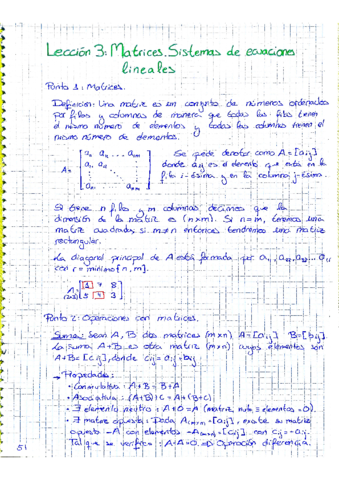 Lección 3: Matrices. Sistemas de ecuaciones
lineales
Punto 1: Matrices.
Definición: Una matriz es un conjunto de números ordenados
por filas y columnas de manera que todas las filas tienen
el mismo número de elementos y todas las columnas tienen el
mismo número de elementos.
Se puede denotar como A = [aij]
donde aij es el elemento que está en la
fila i-ésima y en la columna j-ésima.
A =
a11 a12 ... a1m
a21 a22
an1 ... anm
Si tiene n filas y m columnas, decimos que la
dimensión de la matriz es (n×m). Si n=m, tenemos una
matriz cuadrada, si m≠n entonces tendremos una matriz
rectangular.
La diagonal principal de A está formada por a11, a22, a33, ... arr
con r = mínimo [n, m].
A = 1 7 8
(2x3) 5 4 3
Punto 2: Operaciones con matrices.
Suma: Sean A, B dos matrices (m×n) A = [aij] B = [bij]
La suma A+B es otra matriz (m×n) cuyos elementos son
A+B = [cij], donde cij = aij + bij
→ Propiedades:
• Conmutativa: A+B = B+A
• Asociativa: (A+B)+C = A+(B+C)
• ∃ elemento neutro: A+0 = A (matriz nula = elementos = 0).
• ∃ matriz opuesta: Dada A(m×n) = [aij], existe su matriz
opuesta -A con elementos -A(m×n) = [cij], con cij = -aij
Tal que se verifica: A+A = 0 ⇒ Operación diferencia.
51